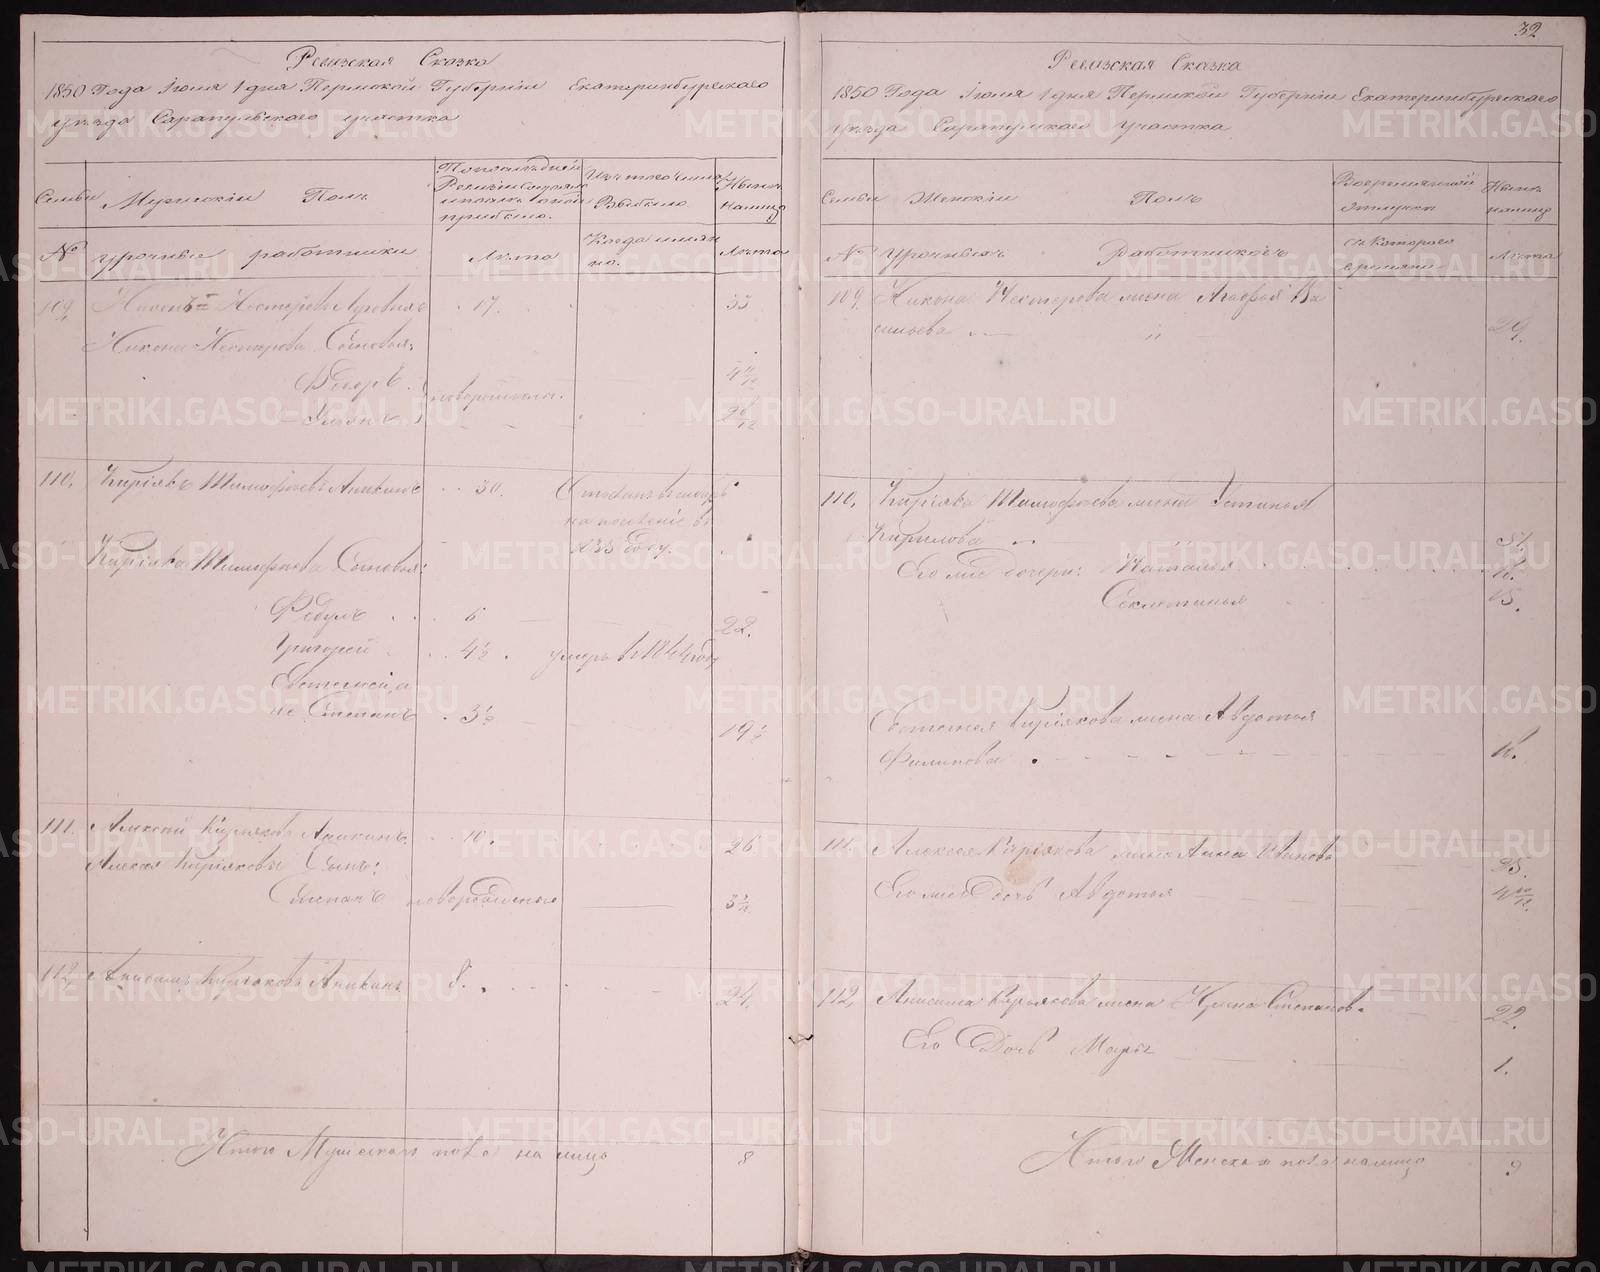 Ревизская Сказка
1850 Года Іюля 1 дня Пермской Губерніи Екатеринбургскаго
уѣзда Сарапульскаго участка
Семьи
Мужскій Полъ
По послѣдней
Ревизіи состояло
и послѣ оной
прибыло.
Изъ того числа
Выбыло
Нынѣ
на лицо
№
урочные работники
Лѣта
Когда именно.
Лѣта
109.
Никонъ Нестеровъ
17.
33
Никона Нестерова Сыновья:
Ѳедоръ
новорожден.
Ульянъ
110.
Киріякъ Тимофѣевъ Аникинъ
30.
на поселеніе въ
1835 году.
Киріяка Тимофѣева Сыновья:
Ѳедулъ
6
22.
Григорей
4 1/2
умеръ въ 1844 году
Евстегней, а
не Степанъ
3 1/2
19 1/2
111.
Алексѣй Киріяковъ Аникинъ
10.
26
Алексея Киріякова Сынъ:
Степанъ
новорожденные
112.
Анисимъ Киріяковъ Аникинъ
8.
24.
Итого Мужеска пола на лицо
8
32
Ревизская Сказка
1850 Года Іюля 1 дня Пермской Губерніи Екатеринбургскаго
уѣзда Сарапульскаго участка
Семьи
Женскій Полъ
Во временной
отлучкѣ
Нынѣ
на лицо
№
урочныхъ Работниковъ
съ Котораго
времяни
Лѣта
109.
Никона Нестерова жена Агафья Ва
сильева
29.
110.
Киріяка Тимофѣева жена Устинья
Кирилова
51.
Его же дочери: Наталья
Секлетинья
15.
Евстегнея Киріякова жена Авдотья
Филипова
18.
111.
Алексея Киріякова жена Анна Иванова
25.
Его же Дочь Авдотья
4 10/12.
112.
Анисима Кирьякова жена Ирина Степанова
22.
Его Дочь Марья
1.
Итого Женска пола на лицо
9
METRIKI.GASO-URAL.RU